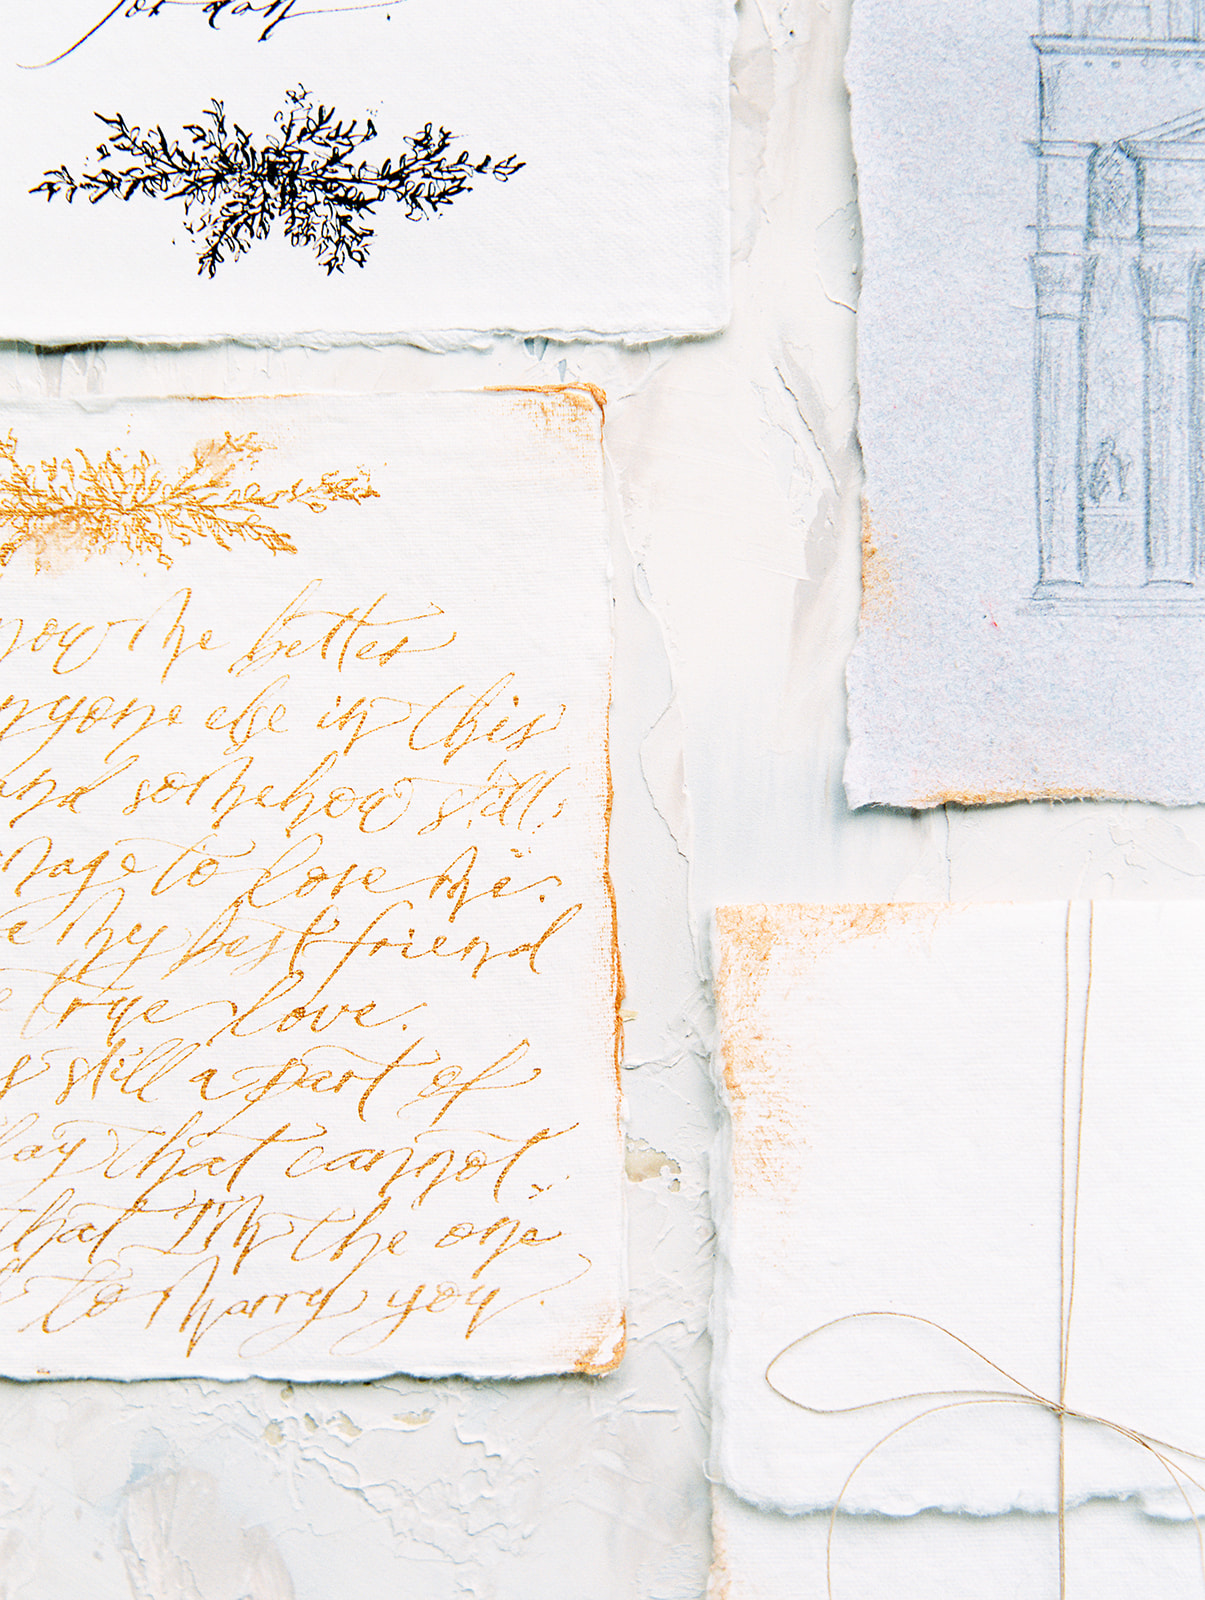 now me better
anyone else in this
and somehow still
manage to love me.
e my best friend
e true love.
s still a part of
day that cannot
that I'm the one
to marry you.